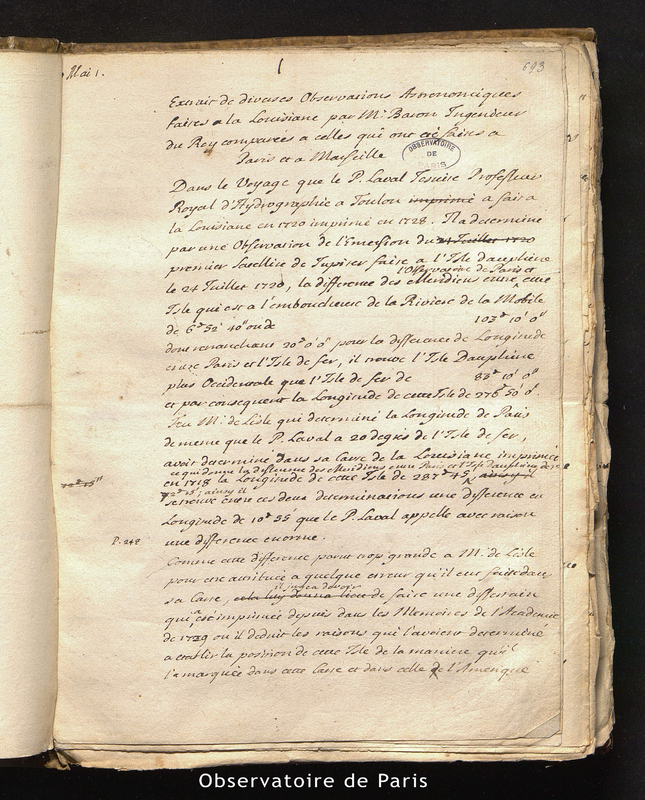 Mai 1.
1
693
Extrait de diverses Observations Astronomiques
faites a la Louisiane par Mr. Baron Ingenieur
du Roy comparées a celles qui ont eté faites a
Paris et a Marseille
OBSERVATOIRE
DE
PARIS
Dans le Voyage que le P. Laval Jesuite Professeur
Royal d'Hydrographie a Toulon imprimé a fait a
la Louisiane en 1720 imprimé en 1728. Il a determiné
par une Observation de l'Emersion du 24 Juillet 1720
premier Satellite de Jupiter faite a l'Isle dauphine
l'Observatoire de Paris et
le 24 Juillet 1720, la difference des Meridiens entre cette
Isle qui est a l'embouchure de la Riviere de la Mobile
de 6h 52' 40" ou de 103d 10' 0"
dont retranchant 20d 0' 0" pour la difference de Longitude
entre Paris et l'Isle de fer, il trouve l'Isle Dauphine
plus Occidentale que l'Isle de fer de 83d 10' 0"
et par consequent la Longitude de cette Isle de 276d 50' 0".
feu Mr. de Lisle qui determiné la Longitude de Paris
de meme que le P. Laval a 20 degrés de l'Isle de fer,
avoit determiné dans sa Carte de la Louisiane imprimée
ce qui donne la difference des Meridiens entre Paris et l'Isle dauphine de
en 1718 la Longitude de cette Isle de 287d 45', ainsi il
92d 15'; ainsy il
se trouve entre ces deux determinations une difference en
Longitude de 10d 55' que le P. Laval appelle avec raison
P. 248
une difference enorme.
Comme cette difference parut trop grande a Mr. de Lisle
pour etre attribuée a quelque erreur qu'il eut faite dans
il jugea devoir
sa Carte, cela luy donna lieu de faire une dissertation
qui a eté imprimée depuis dans les Memoires de l'Academie
de 1729 ou il deduit les raisons qui l'avoient determiné
a etablir la position de cette Isle de la maniere qu'il
l'a marquée dans cette Carte et dans celle de l'Amerique
Observatoire de Paris